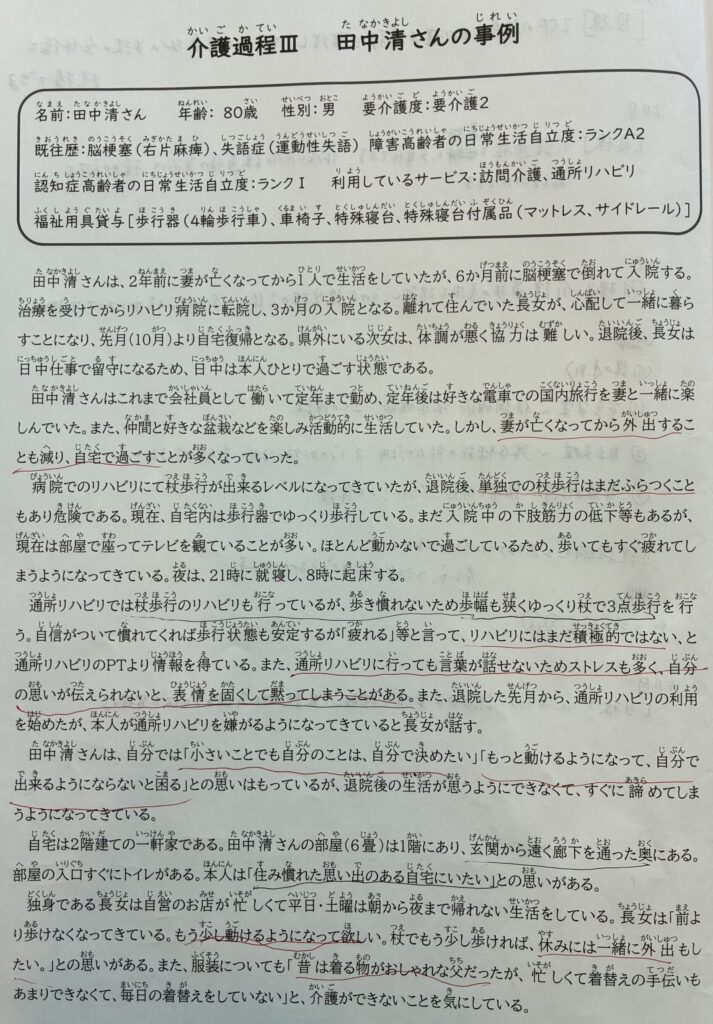 介護過程Ⅲ　田中清さんの事例
名前:田中清さん　年齢: 80歳　性別:男　要介護度:要介護2
既往歴:脳梗塞(右片麻痺)、失語症(運動性失語) 障害高齢者の日常生活自立度:ランクA2
認知症高齢者の日常生活自立度:ランクⅠ　利用しているサービス:訪問介護、通所リハビリ
福祉用具貸与[歩行器(4輪歩行車)、車椅子、特殊寝台、特殊寝台付属品(マットレス、サイドレール)]
田中清さんは、2年前に妻が亡くなってから1人で生活をしていたが、6か月前に脳梗塞で倒れて入院する。
治療を受けてからリハビリ病院に転院し、3か月の入院となる。離れて住んでいた長女が、心配して一緒に暮ら
すことになり、先月(10月)より自宅復帰となる。県外にいる次女は、体調が悪く協力は難しい。退院後、長女は
日中仕事で留守になるため、日中は本人ひとりで過ごす状態である。
田中清さんはこれまで会社員として働いて定年まで勤め、定年後は好きな電車での国内旅行を妻と一緒に楽
しんでいた。また、仲間と好きな盆栽などを楽しみ活動的に生活していた。しかし、妻が亡くなってから外出するこ
とも減り、自宅で過ごすことが多くなっていった。
病院でのリハビリにて杖歩行が出来るレベルになってきていたが、退院後、単独での杖歩行はまだふらつくこと
もあり危険である。現在、自宅内は歩行器でゆっくり歩行している。まだ入院中の下肢筋力の低下等もあるが、
現在は部屋で座ってテレビを観ていることが多い。ほとんど動かないで過ごしているため、歩いてもすぐ疲れてし
まうようになってきている。夜は、21時に就寝し、8時に起床する。
通所リハビリでは杖歩行のリハビリも行っているが、歩き慣れないため歩幅も狭くゆっくり杖で3点歩行を行
う。自信がついて慣れてくれば歩行状態も安定するが「疲れる」等と言って、リハビリにはまだ積極的ではない、と
通所リハビリのPTより情報を得ている。また、通所リハビリに行っても言葉が話せないためストレスも多く、自分
の思いが伝えられないと、表情を固くして黙ってしまうことがある。また、退院した先月から、通所リハビリの利用
を始めたが、本人が通所リハビリを嫌がるようになってきていると長女が話す。
田中清さんは、自分では「小さいことでも自分のことは、自分で決めたい」「もっと動けるようになって、自分で
出来るようにならないと困る」との思いはもっているが、退院後の生活が思うようにできなくて、すぐに諦めてしま
うようになってきている。
自宅は2階建ての一軒家である。田中清さんの部屋(6畳)は1階にあり、玄関から遠く廊下を通った奥にある。
部屋の入口すぐにトイレがある。本人は「住み慣れた思い出のある自宅にいたい」との思いがある。
独身である長女は自営のお店が忙しくて平日・土曜は朝から夜まで帰れない生活をしている。長女は「前よ
り歩けなくなってきている。もう少し動けるようになって欲しい。杖でもう少し歩ければ、休みには一緒に外出もし
たい。」との思いがある。また、服装についても「昔は着る物がおしゃれな父だったが、忙しくて着替えの手伝いも
あまりできなくて、毎日の着替えをしていない」と、介護ができないことを気にしている。